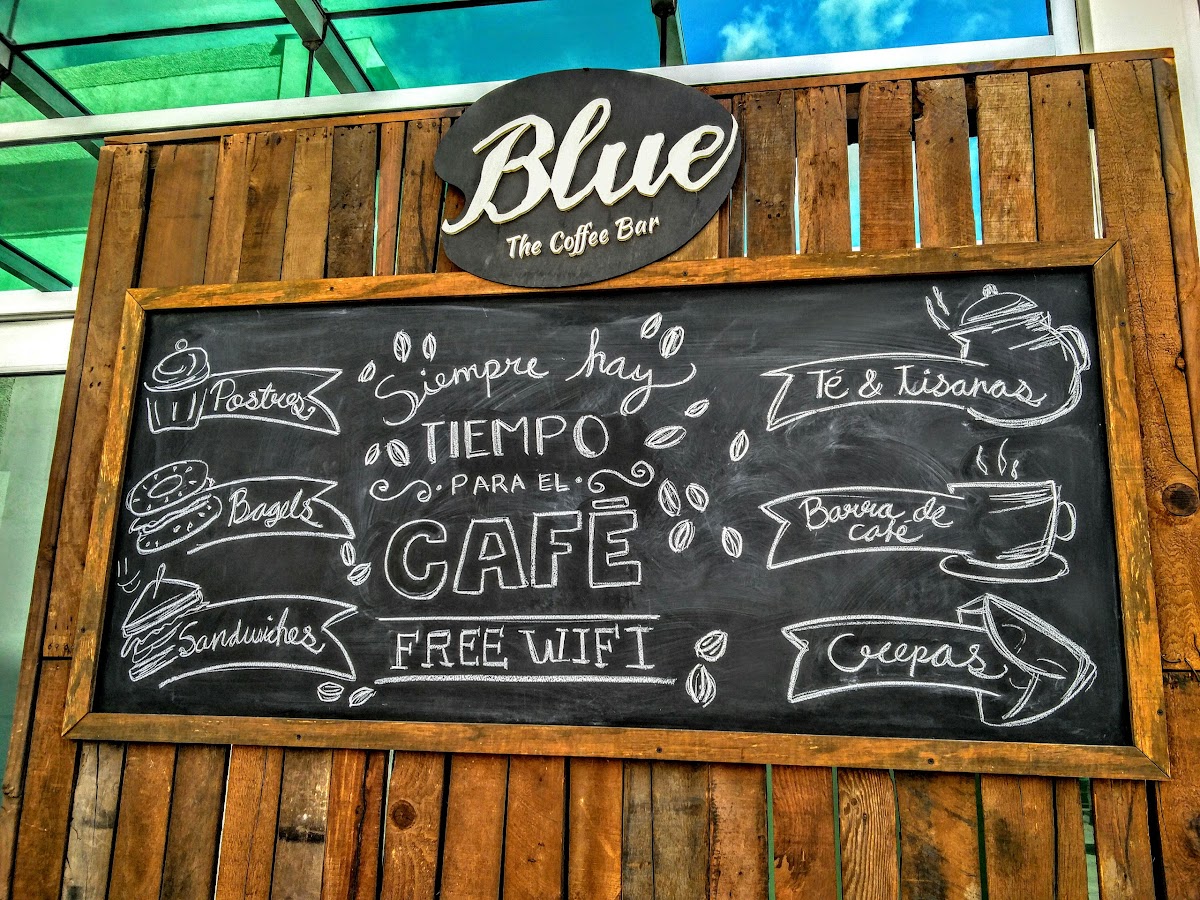 Blue
The Coffee Bar
Postres
Bagels
Sandwiches
Siempre hay
TIEMPO
PARA EL
CAFÉ
FREE WIFI
Té & Tisanas
Barra de
café
Crepas